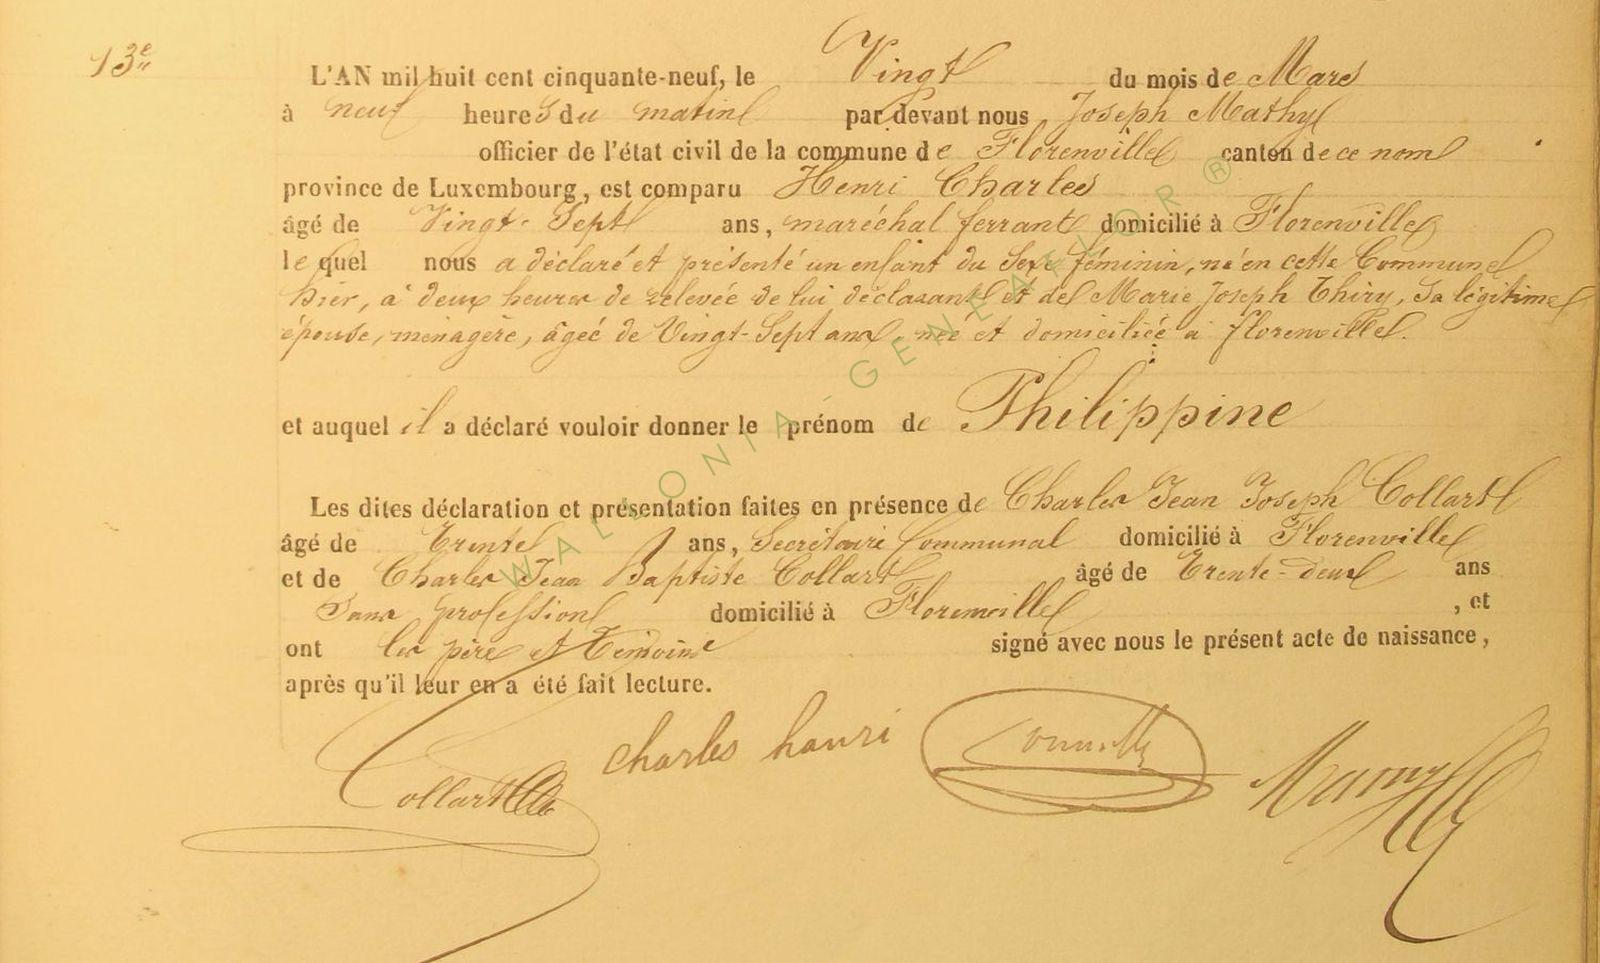 13e
L'AN mil huit cent cinquante-neuf, le Vingt du mois de Mars
à neuf heures du matin par devant nous Joseph Mathy
officier de l'état civil de la commune de Florenville canton de ce nom
province de Luxembourg, est comparu Henri Charles
âgé de Vingt-Sept ans, maréchal ferrant domicilié à Florenville
lequel nous a déclaré et présenté un enfant du Sexe féminin, né en cette Commune
hier, à deux heures de relevée de lui déclarant et de Marie Joseph Thiry, sa légitime
épouse, ménagère, âgée de Vingt-Sept ans, née et domiciliée à florenville.
et auquel il a déclaré vouloir donner le prénom de Philippine
Les dites déclaration et présentation faites en présence de Charles Jean Joseph Collart
âgé de Trente ans, Secrétaire Communal domicilié à Florenville
et de Charles Jean Baptiste Collart âgé de Trente-deux ans
Sans profession domicilié à Florenville, et
ont les père et Témoins signé avec nous le présent acte de naissance,
après qu'il leur en a été fait lecture.
Collart charles hanri
WALLONIA-GENEALOR ®